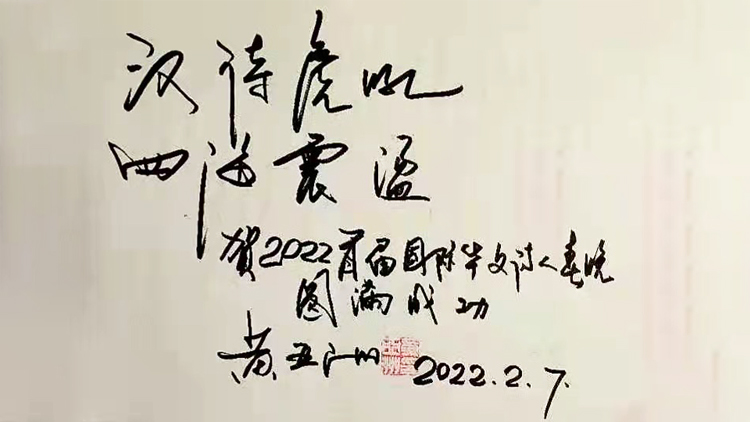 汉诗虎吼
四海震荡
贺2022首届国际华文诗人春晚
圆满成功
黄亚洲 2022.2.7.